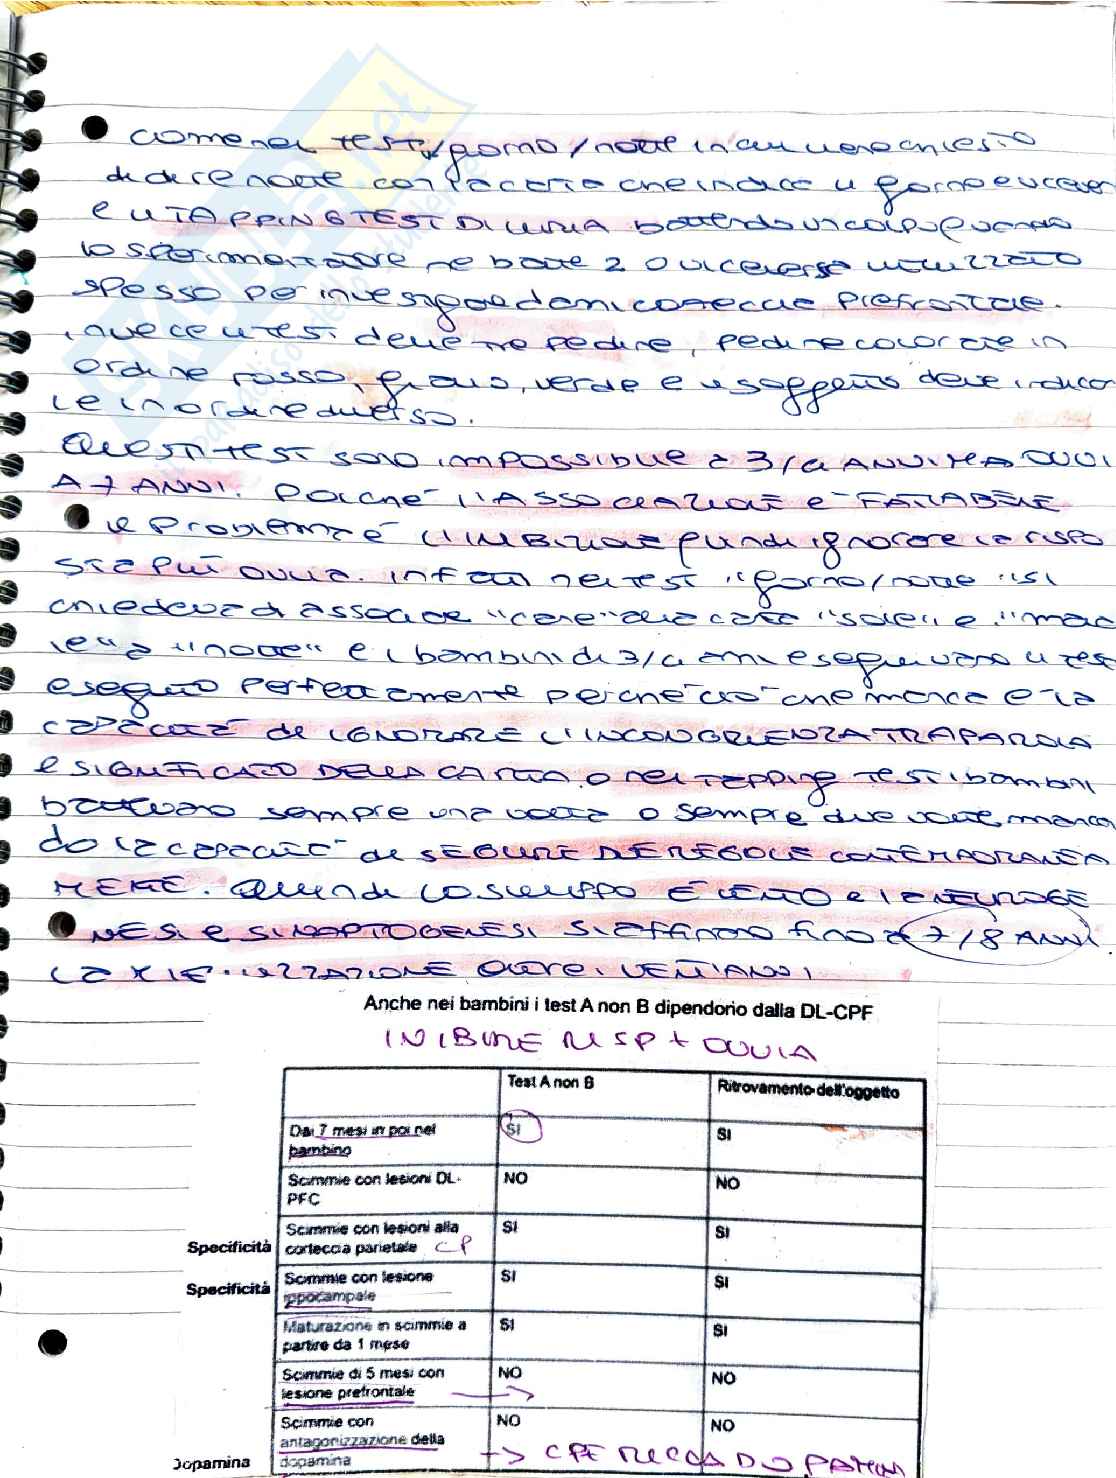 come nel test giorno/notte in cui viene chiesto
di dire notte con la carta che indica il giorno e viceversa
e il TAPPING TEST DI LURIA battendo un colpo quando
lo sperimentatore ne batte 2 o viceversa utilizzato
spesso per investigare danni corteccia prefrontale.
invece il test delle tre pedine, pedine colorate in
ordine rosso, giallo, verde e il soggetto deve indicar
le in ordine diverso.
Questi test sono impossibile a 3/4 ANNI MA OVVI
A 7 ANNI. Poiché l'ASSOCIAZIONE è FATTA BENE
il problema è L'INIBIZIONE quindi ignorare la rispo
sta più ovvia. Infatti nel test "giorno/notte" si
chiedeva di associare "cane" alla carta "sole" e "maia
le" a "notte" e i bambini di 3/4 anni eseguivano il test
eseguito perfettamente perché ciò che manca è la
capacità di IGNORARE L'INCONGRUENZA TRA PAROLA
e SIGNIFICATO DELLA CARTA. o nel tapping test i bambini
battevano sempre una volta o sempre due volte, mancan
do la capacità di SEGUIRE DUE REGOLE CONTEMPORANEA
MENTE. Quindi lo sviluppo È LENTO e la NEUROGE
NESI e SINAPTOGENESI si affinano fino a 7/8 ANNI
LA MIELINIZZAZIONE oltre i VENT'ANNI
Anche nei bambini i test A non B dipendono dalla DL-CPF
INIBIRE RISP + OVVIA
Test A non B Ritrovamento dell'oggetto
Dai 7 mesi in poi nel SI SI
bambino
Scimmie con lesioni DL- NO NO
PFC
Scimmie con lesioni alla SI SI
Specificità corteccia parietale CP
Scimmie con lesione SI SI
Specificità ippocampale
Maturazione in scimmie a SI SI
partire da 1 mese
Scimmie di 5 mesi con NO NO
lesione prefrontale
Scimmie con NO NO
antagonizzazione della
Dopamina dopamina → CPF RICCA DOPAMIN